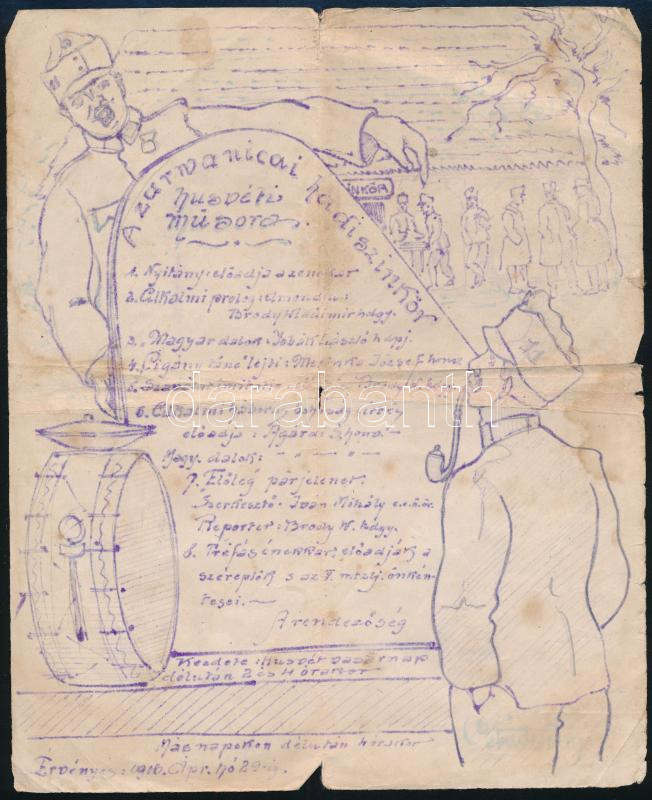 A zarwanicai hadiszinkör
husvéti
műsora.
INKÖR
1. Nyitány: előadja a zenekar
2. Alkalmi prolog: elmondja:
Brody Wladimir hdgy.
3. Magyar dalok: László hpj.
4. Cigány tánc lejti: József honv.
5.
6. Alkalmi
előadja: Agárdi I. honv. —
Magy. dalok: — " — " —
7. Előleg párjelenet.
Szerkesztő: Iván Mihály e.é.ö.
Reporter: Brody W. hdgy.
8. Tréfás énekkar, előadják a
szereplők s az V. m. zlj. önkén-
tesei. —
A rendezőség
Kezdete: Husvét vasárnap
délután 2 és 4 órakor
Más napokon délután 4 órakor
Érvényes: 1916. Ápr. hó 29-ig.
darabanth